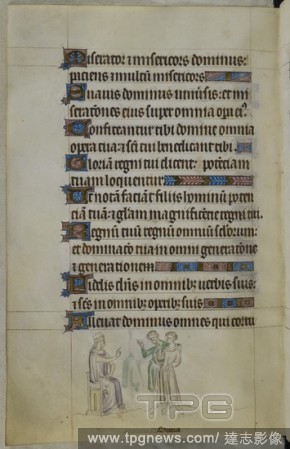 Miserator ⁊ misericors dominus:
paciens ⁊ multū misericors
Suavis dominus univ̾sis: et mi
seratōnes eius super omnia op̄a ei⁹.
Confiteantur tibi domine omnia
opera tua: ⁊ sc̄i tui benedicant tibi.
Gloriam regni tui dicent: ⁊ potēciam
tuam loquentur
Ut notam faciāt filiis hominū poten
ciā tuā: ⁊ glam̄ magnificēcie regni tui.
Regnū tuū regnū omniū sc̄lorum:
et dominatō tua in omni generatōne
⁊ generationem
Fidelis dn̄s in omnib; verbis suis:
⁊ sc̄s in omnib; operib; suis
Allevat dominus omnes qui corru
TPG
www.tpgnews.com / 達志影像